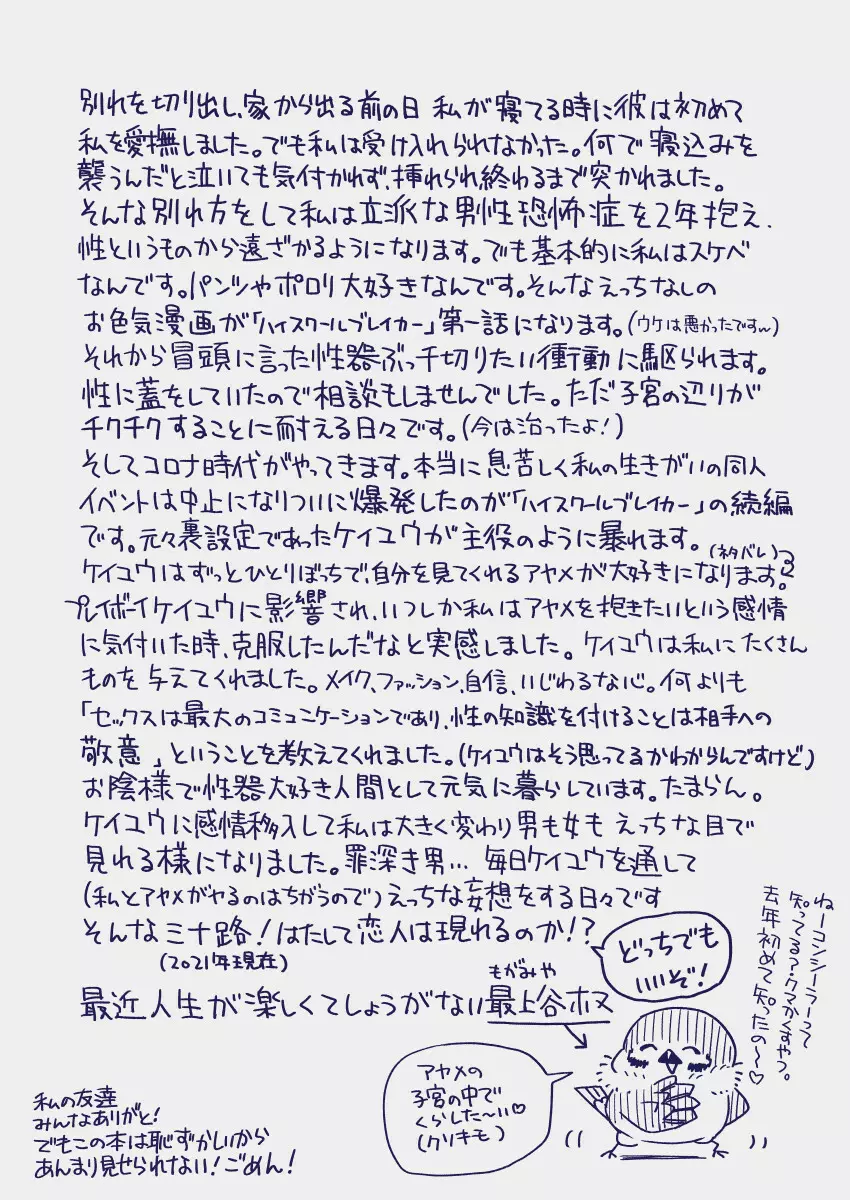 別れを切り出し、家から出る前の日 私が寝てる時に彼は初めて
私を愛撫しました。でも私は受け入れられなかった。何で寝込みを
襲うんだと泣いても気付かれず、挿れられ終わるまで突かれました。
そんな別れ方をして私は立派な男性恐怖症を2年抱え、
性というものから遠ざかるようになります。でも基本的に私はスケベ
なんです。パンツやポロリ大好きなんです。そんなえっちなしの
お色気漫画が「ハイスクールブレイカー」第一話になります。(ウケは悪かったですw)
それから冒頭に言った性器ぶっ千切りたい衝動に駆られます。
性に蓋をしていたので相談もしませんでした。ただ子宮の辺りが
チクチクすることに耐える日々です。(今は治ったよ!)
そしてコロナ時代がやってきます。本当に息苦しく私の生きがいの同人
イベントは中止になりついに爆発したのが「ハイスクールブレイカー」の続編
です。元々裏設定であったケイユウが主役のように暴れます。
(ネタバレ)
ケイユウはずっとひとりぼっちで、自分を見てくれるアヤメが大好きになります。
プレイボーイケイユウに影響され、いつしか私はアヤメを抱きたいという感情
に気付いた時、克服したんだなと実感しました。ケイユウは私にたくさん
ものを与えてくれました。メイク、ファッション、自信、いじわるな心。何よりも
「セックスは最大のコミュニケーションであり、性の知識を付けることは相手への
敬意」ということを教えてくれました。(ケイユウはそう思ってるかわからんですけど)
お陰様で性器大好き人間として元気に暮らしています。たまらん。
ケイユウに感情移入して私は大きく変わり男も女もえっちな目で
見れる様になりました。罪深き男… 毎日ケイユウを通して
(私とアヤメがヤるのはちがうので)えっちな妄想をする日々です
そんなミソ路!はたして恋人は現れるのか!?
(2021年現在)
どっちでも
いいぞ!
もがみや
最近人生が楽しくてしょうがない最上谷ホヌ
ねーコンシーラーって
知ってる?クマかくすやつ。
去年初めて知ったの〜♡
アヤメの
子宮の中で
くらした〜い♡
(クソキモ)
私の友達
みんなありがと!
でもこの本は恥ずかしいから
あんまり見せられない!ごめん!